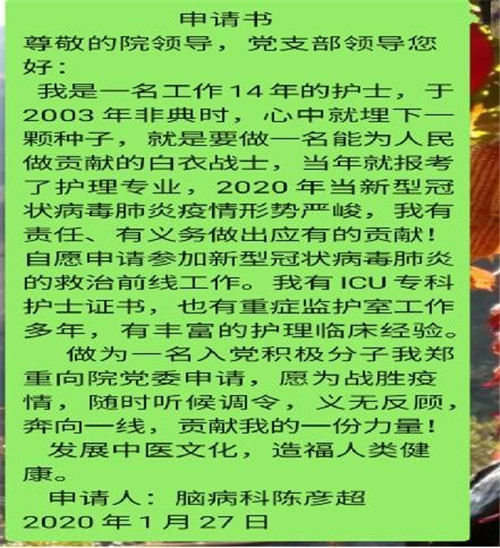 申请书
尊敬的院领导，党支部领导您
好：
我是一名工作14年的护士，于
2003年非典时，心中就埋下一
颗种子，就是要做一名能为人民
做贡献的白衣战士，当年就报考
了护理专业，2020年当新型冠
状病毒肺炎疫情形势严峻，我有
责任、有义务做出应有的贡献！
自愿申请参加新型冠状病毒肺炎
的救治前线工作。我有ICU专科
护士证书，也有重症监护室工作
多年，有丰富的护理临床经验。
做为一名入党积极分子我郑
重向院党委申请，愿为战胜疫
情，随时听候调令，义无反顾，
奔向一线，贡献我的一份力量！
发展中医文化，造福人类健
康。
申请人：脑病科陈彦超
2020年1月27日